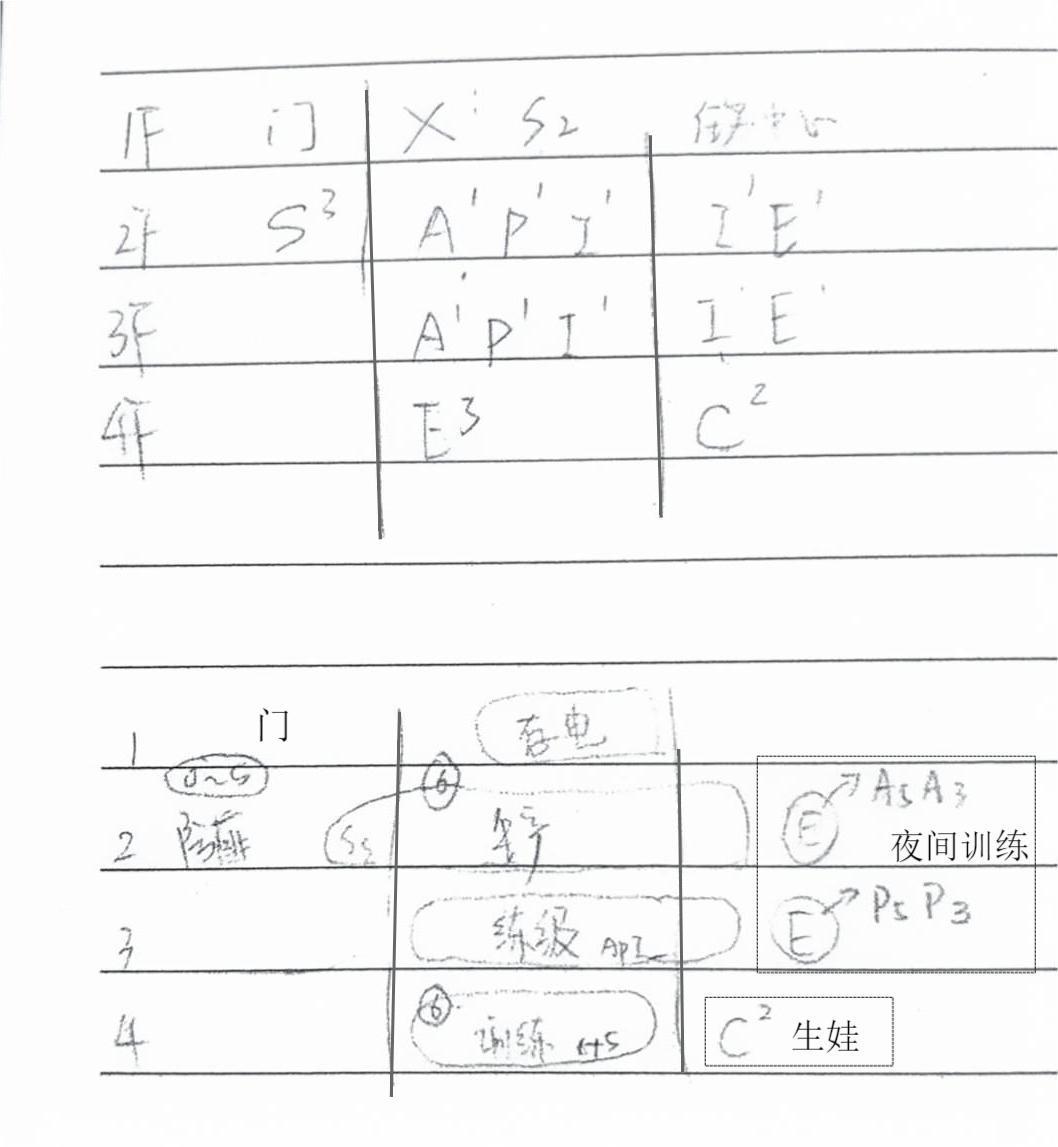 1F 门 X S2 任务中心
2F S³ A¹ P¹ I¹ I¹ E¹
3F A¹ P¹ I¹ I¹ E¹
4F E³ C²
1 门 存电
2 防 6 E→A5A3
夜间训练
3 练级 API E→P5P3
4 6 训练 C² 生娃